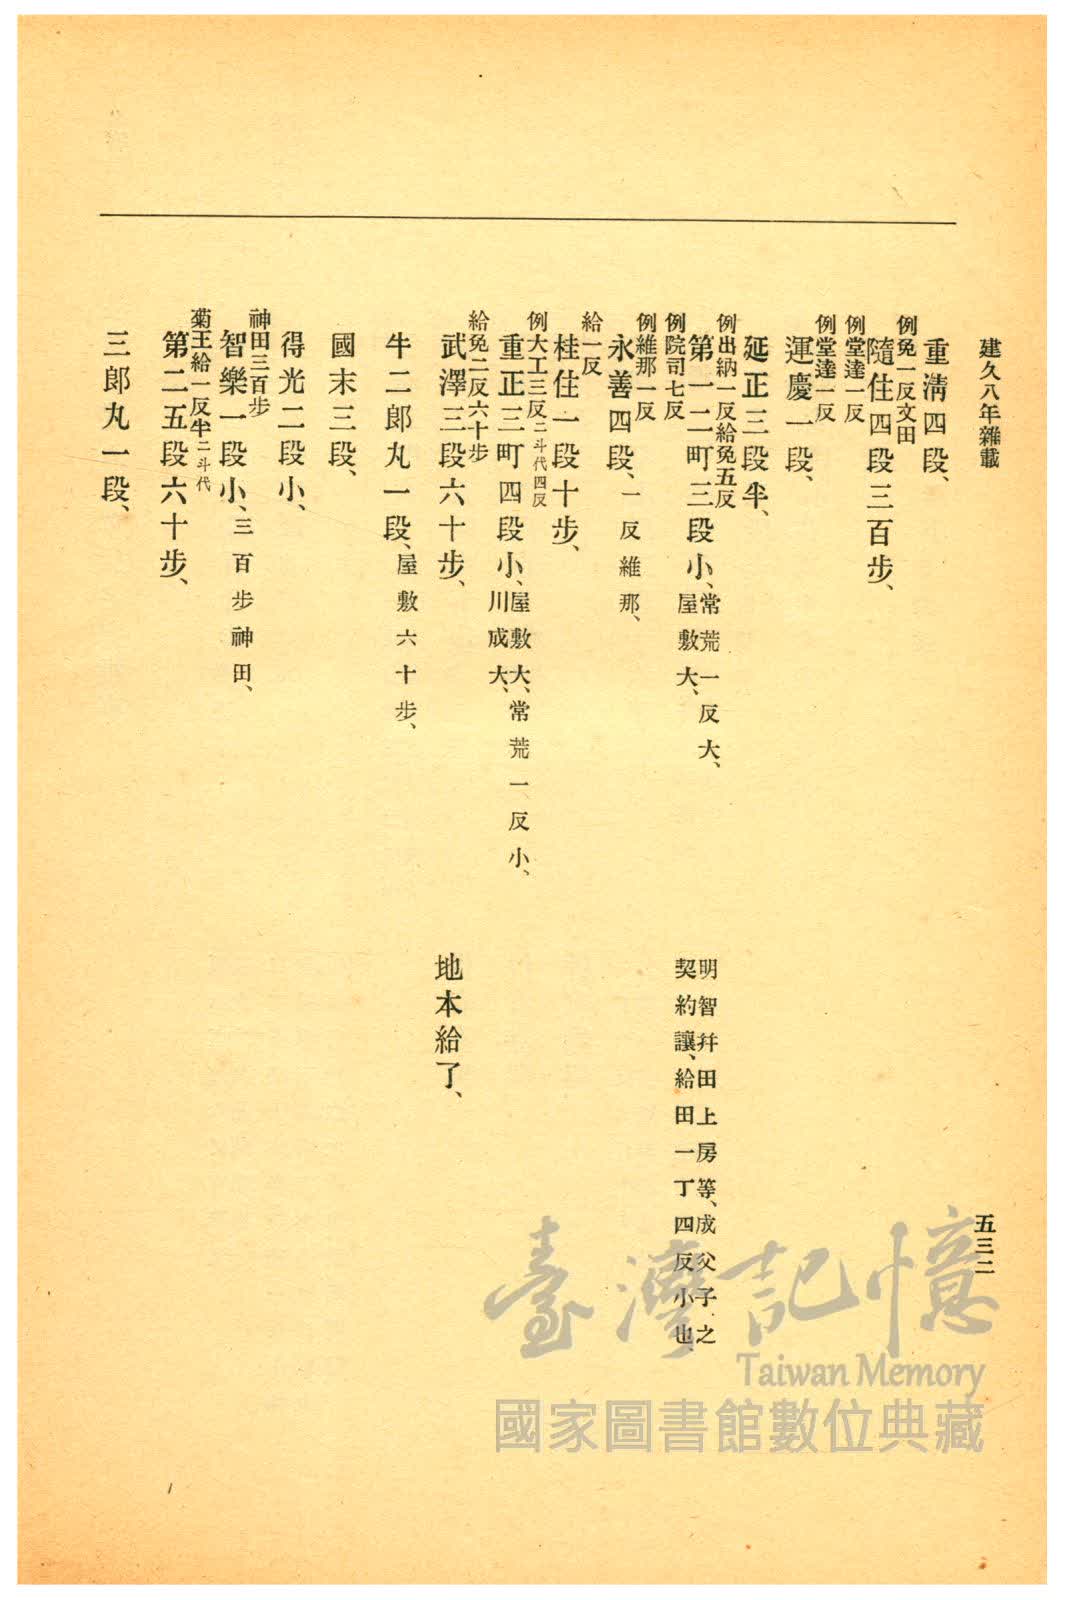 建久八年雜載
五三二
重淸四段、
例免一反文田
隨住四段三百步、
例堂達一反
運慶一段、
例堂達一反
延正三段半、
例出納一反給免五反
第一二町三段小、常荒一反大、
屋敷大、
明智幷田上房等、成父子之
契約讓、給田一丁四反小也、
例院司七反
永善四段、一反維那、
例維那一反
桂住一段十步、
給一反
重正三町四段小、屋敷大、常荒一反小、
川成大、
例大工三反二斗代四反
武澤三段六十步、
地本給了、
給免二反六十步
牛二郞丸一段、屋敷六十步、
國末三段、
得光二段小、
智樂一段小、三百步神田、
神田三百步
第二五段六十步、
菊王給一反半二斗代
三郞丸一段、
臺灣記憶
Taiwan Memory
國家圖書館數位典藏